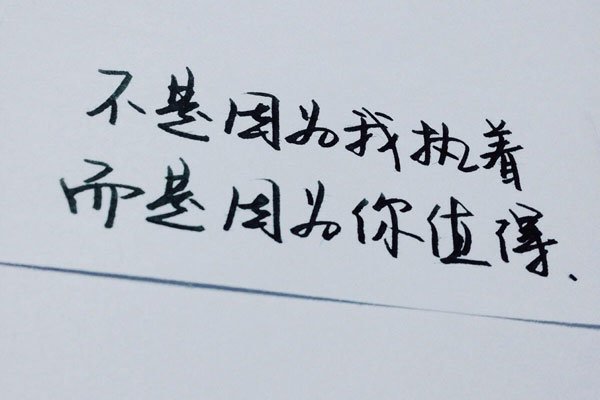 不是因为我执着
而是因为你值得、